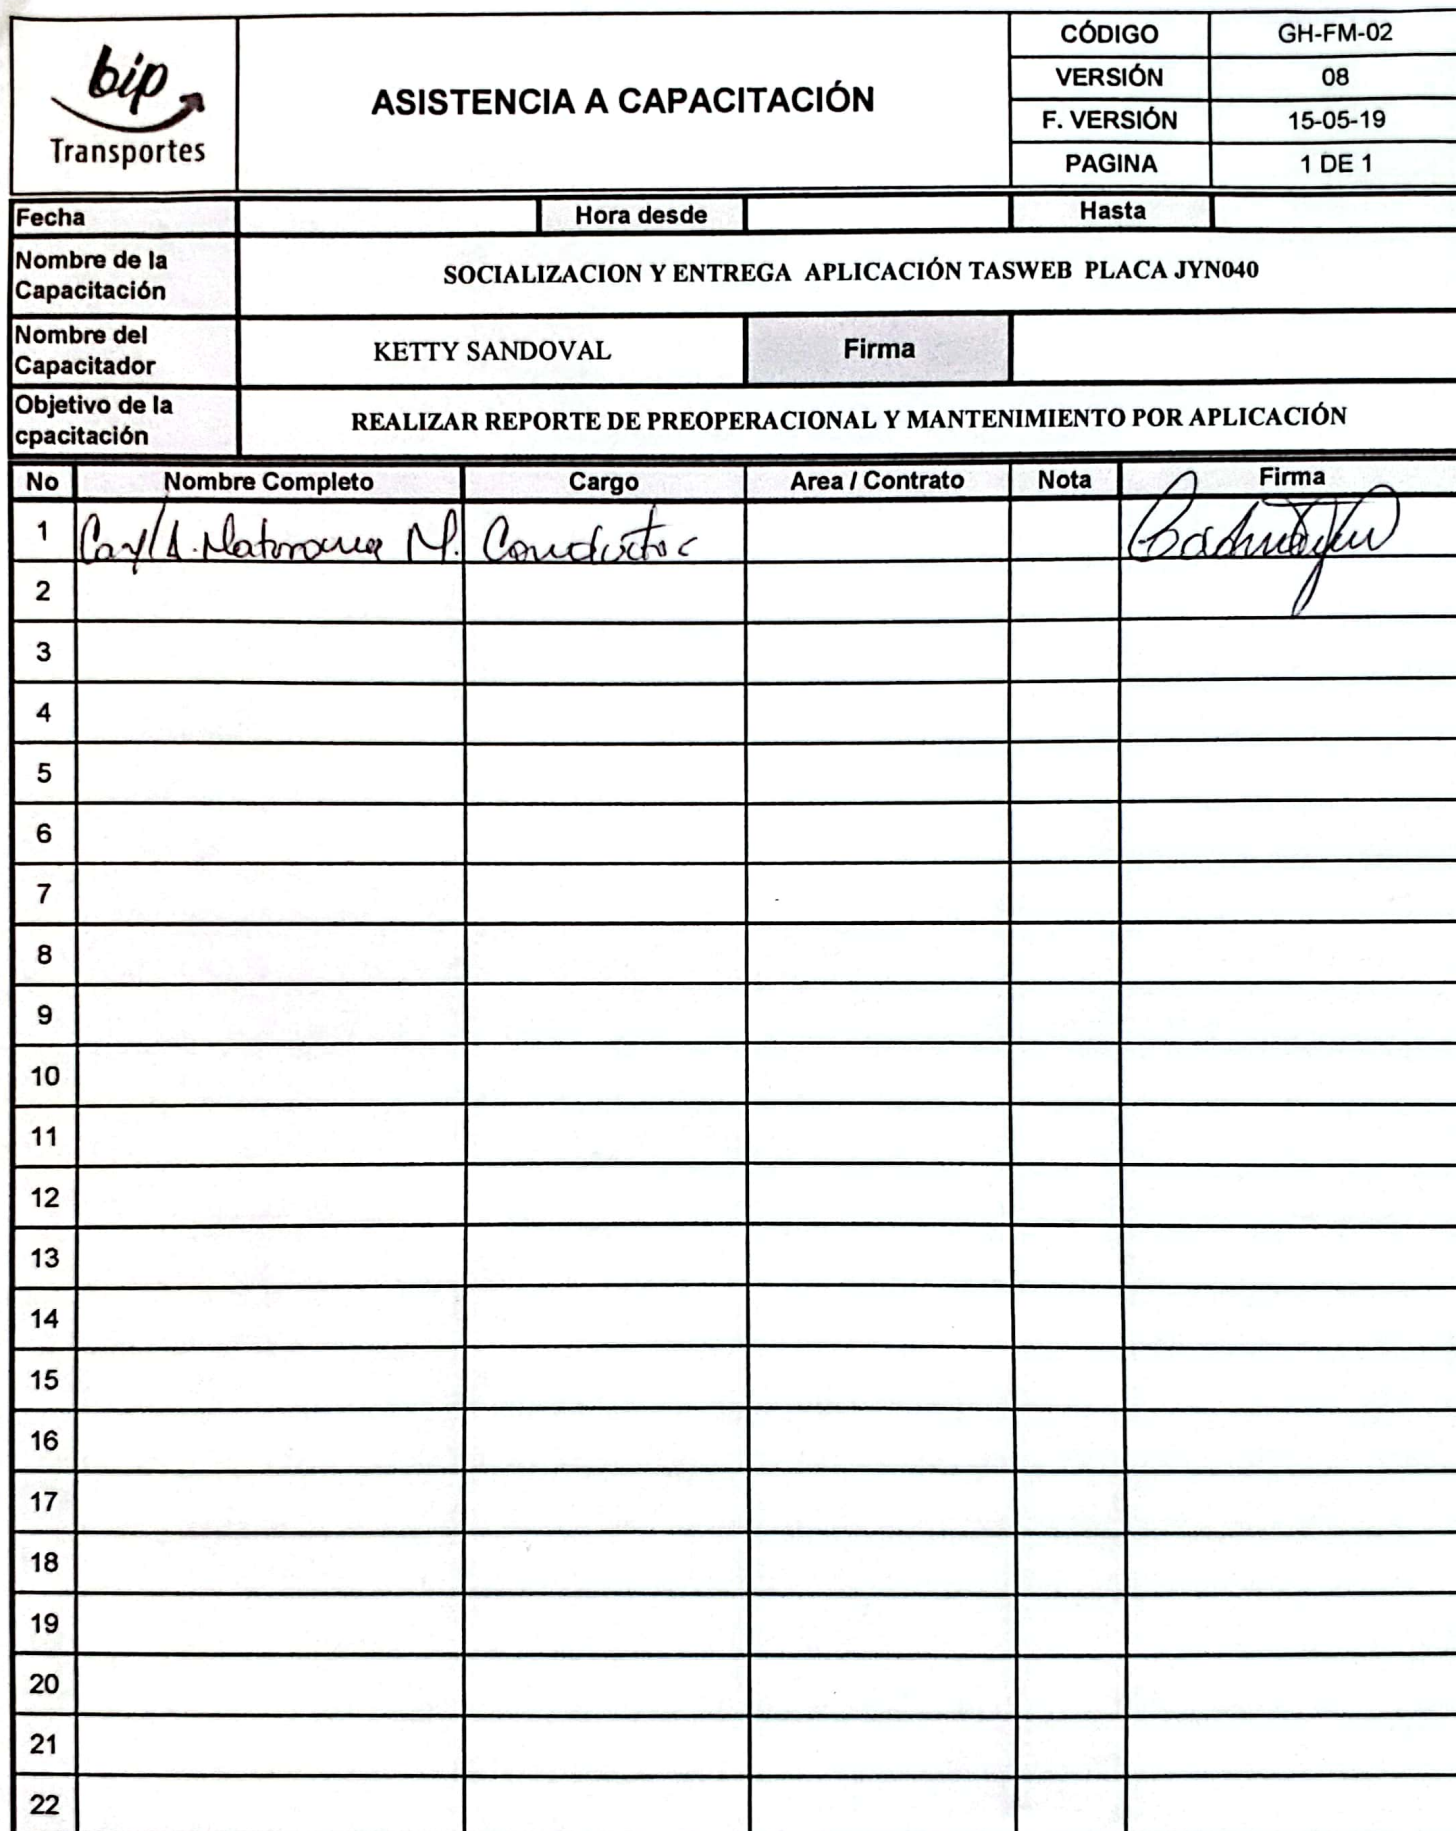 bip
Transportes
ASISTENCIA A CAPACITACIÓN
CÓDIGO GH-FM-02
VERSIÓN 08
F. VERSIÓN 15-05-19
PAGINA 1 DE 1
Fecha Hora desde Hasta
Nombre de la
Capacitación
SOCIALIZACION Y ENTREGA APLICACIÓN TASWEB PLACA JYN040
Nombre del
Capacitador
KETTY SANDOVAL Firma
Objetivo de la
cpacitación
REALIZAR REPORTE DE PREOPERACIONAL Y MANTENIMIENTO POR APLICACIÓN
No Nombre Completo Cargo Area / Contrato Nota Firma
1 A. Maturana M. Conductor
2
3
4
5
6
7
8
9
10
11
12
13
14
15
16
17
18
19
20
21
22